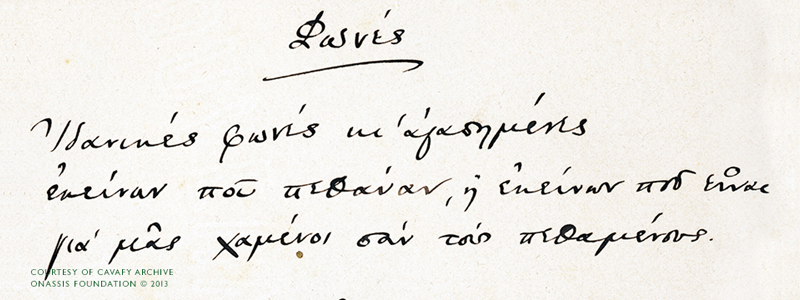 Φωνές
Ἰδανικές φωνές κι' ἀγαπημένες
ἐκείνων που πεθάναν, ἤ ἐκείνων που εἶναι
για μᾶς χαμένοι σάν τους πεθαμένους.
COURTESY OF CAVAFY ARCHIVE
ONASSIS FOUNDATION © 2013